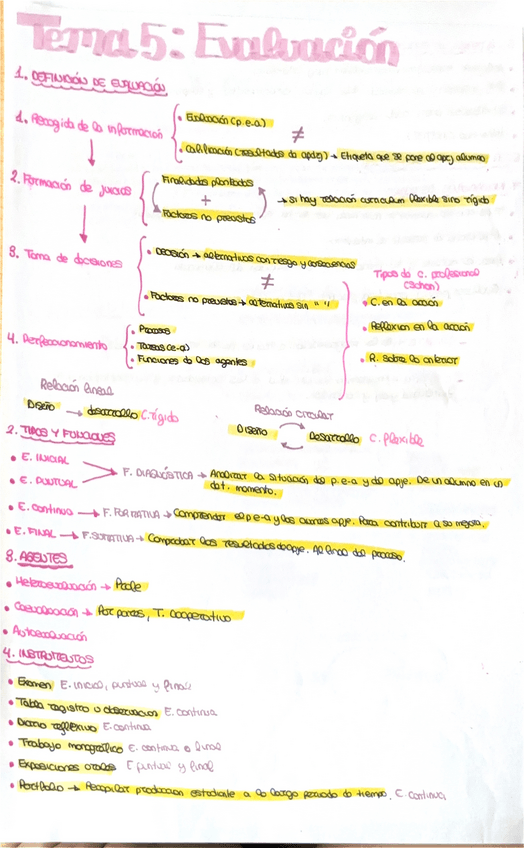 Tema 5: Evaluación
1. DEFINICIÓN DE EVALUACIÓN
1. Recogida de la información
• Evaluación (p.e-a)
≠
• Calificación (resultados do apdzj) → Etiqueta que se pone al apzj alumno
2. Formación de juicios
Finalidades planteadas
+
Factores no previstos
→ si hay relación curriculum flexible sino rígido
3. Toma de decisiones
• DECISIÓN → alternativas con riesgo y consecuencias
≠
• Factores no previstos → alternativas sin " "
Tipos do C. profesional
(Schon)
• C. en la acción
• Reflexion en la acción
• R. sobre lo anterior
4. Perfeccionamiento
• Procesos
• Tareas (e-a)
• Funciones de los agentes
Relación lineal
Diseño → desarrollo C. rígido
Relación circular
Diseño Desarrollo C. flexible
2. TIPOS Y FUNCIONES
• E. INICIAL
• E. PUNTUAL
F. DIAGNÓSTICA → Analizar la situación del p. e-a y del apje. De un alumno en un
dat. momento.
• E. Continua → F. FORMATIVA → Comprender el p e-a y los avances apje. Para contribuir a su mejora.
• E. FINAL → F. SUMATIVA → Comprobar los resultados do apje. Al final del proceso.
3. AGENTES
• Heteroevaluación → Profe
• Coevaluación → Por pares, T. cooperativo
• Autoevaluación
4. INSTRUMENTOS
• Examen E. inicial, puntual y final
• Tabla registro u observación E. continua
• Diario reflexivo E. continua
• Trabajo monográfico E. continua o final
• Exposiciones orales E puntual y final
• Portfolio → Recopilar produccion estudiante a lo largo periodo do tiempo. E. continua.